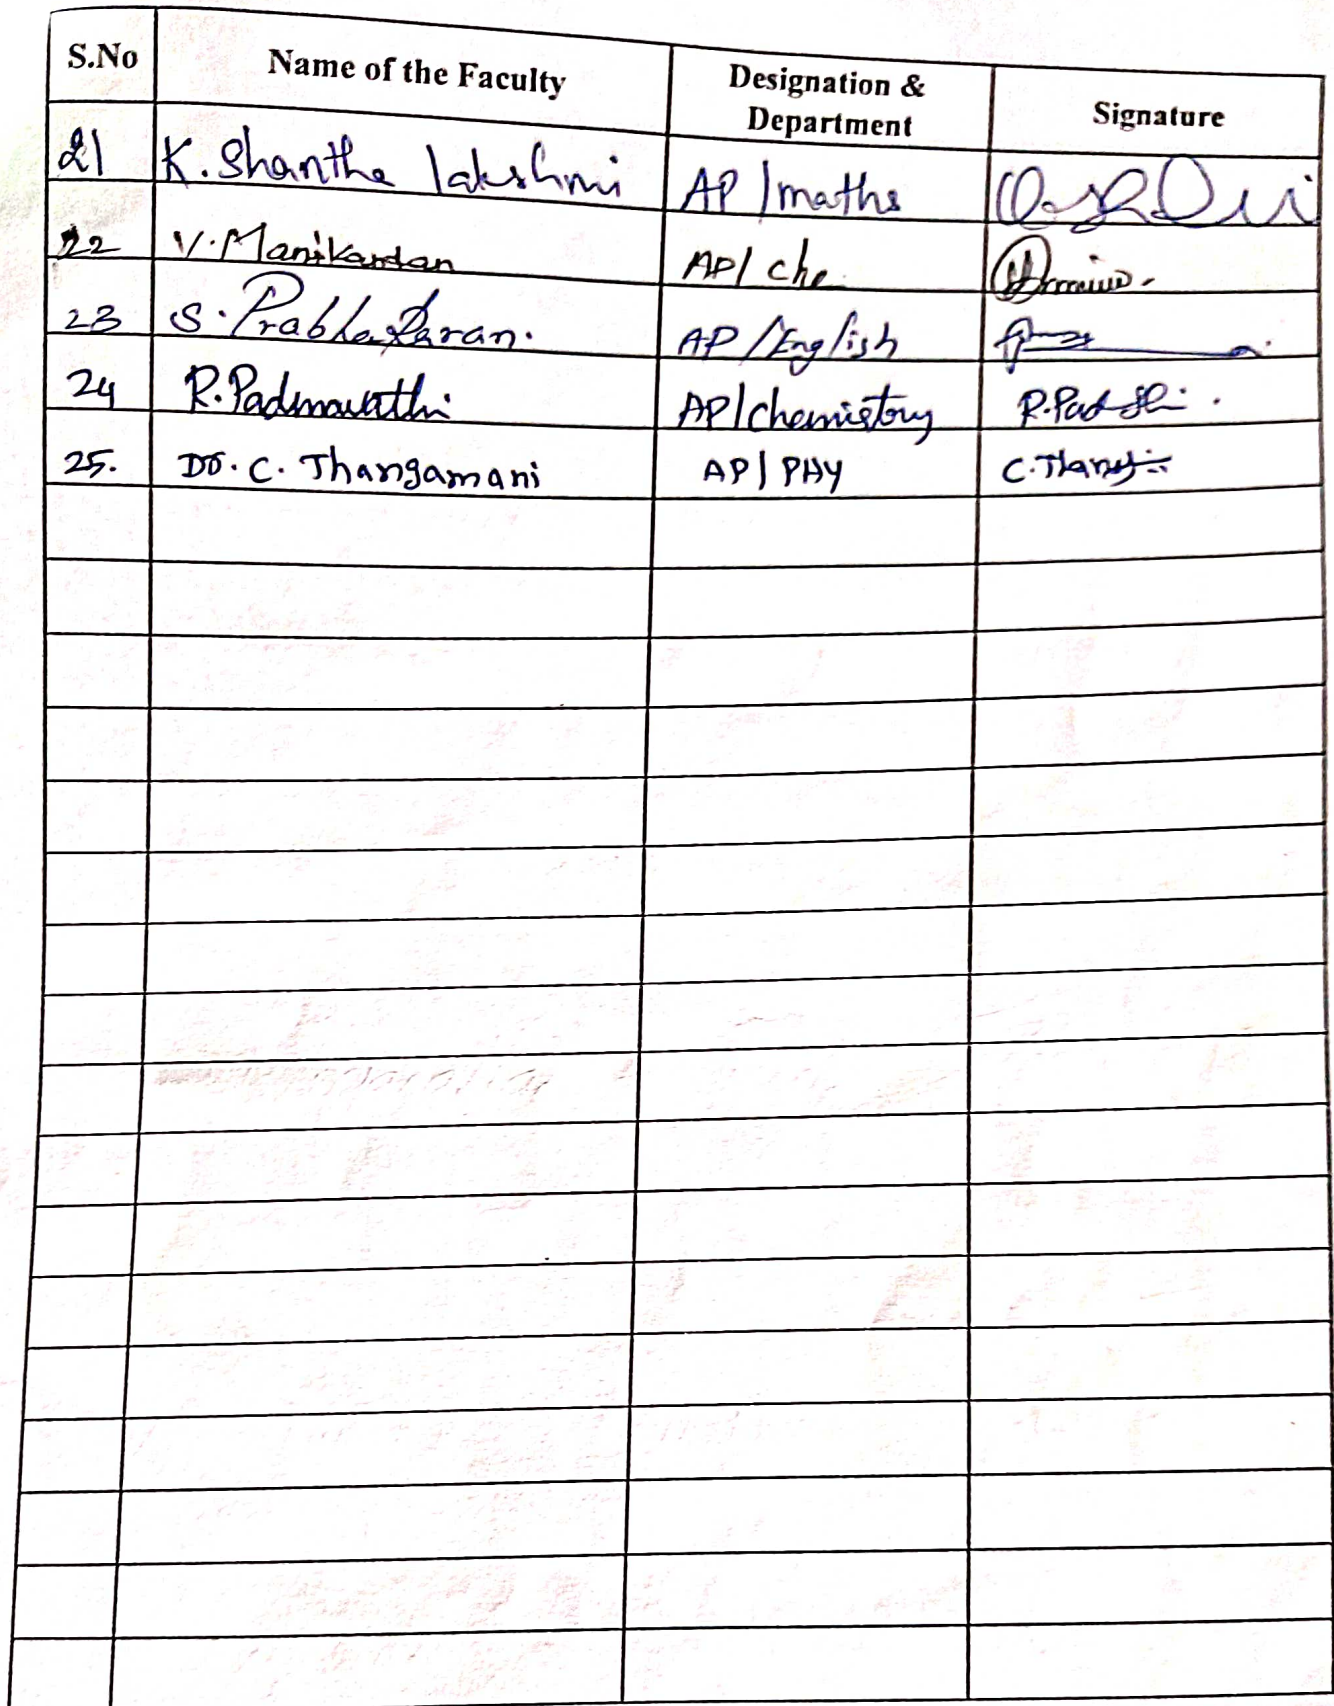 S.No Name of the Faculty Designation & Department Signature
21 K. Shantha lakshmi AP/maths
22 V. Manikandan AP/ che
23 S. Prabhakaran. AP/English
24 R. Padmavathi AP/chemistry R.Pad
25. Dr. C. Thangamani AP/PHY C.Thang